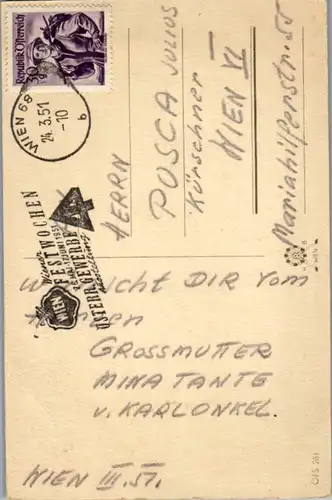 Republik Österreich
30
WIEN 68
24.3.51
-10
b
Wiener
FESTWOCHEN
1951
WIEN
ÖSTERR. GEWERBE
HERRN
POSCA JULIUS
Kürschner
WIEN VI
Mariahilferstr. 55
DIR vom
GROSSMUTTER
MINA TANTE
u. KARLONKEL.
WIEN III. 51.